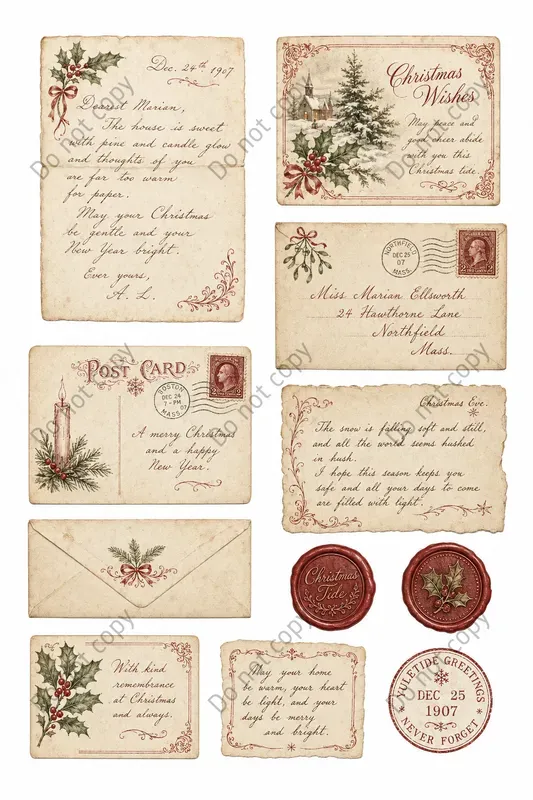 Dec. 24th, 1907
Dearest Marian,
The house is sweet
with pine and candle glow
and thoughts of you
are far too warm
for paper.
May your Christmas
be gentle and your
New Year bright.
Ever yours,
A. L.
Christmas
Wishes
May peace and
good cheer abide
with you this
Christmas tide.
NORTHFIELD
DEC 25
07
MASS.
Miss Marian Ellsworth
24 Hawthorne Lane
Northfield
Mass.
POST CARD
BOSTON
DEC 24
7 - PM
07
MASS.
A merry Christmas
and a happy
New Year.
Christmas Eve.
The snow is falling soft and still,
and all the world seems hushed
in hush.
I hope this season keeps you
safe and all your days to come
are filled with tight.
Christmas
Tide
With kind
remembrance
at Christmas
and always.
May your home
be warm, your heart
be light, and your
days be merry
and bright.
YULETIDE GREETINGS
DEC 25
1907
NEVER FORGET
Do not copy
Do not copy
Do not copy
Do not copy
Do not copy
Do not copy
Do not copy
Do not copy
Do not copy
Do not copy
Do not copy
Do not copy